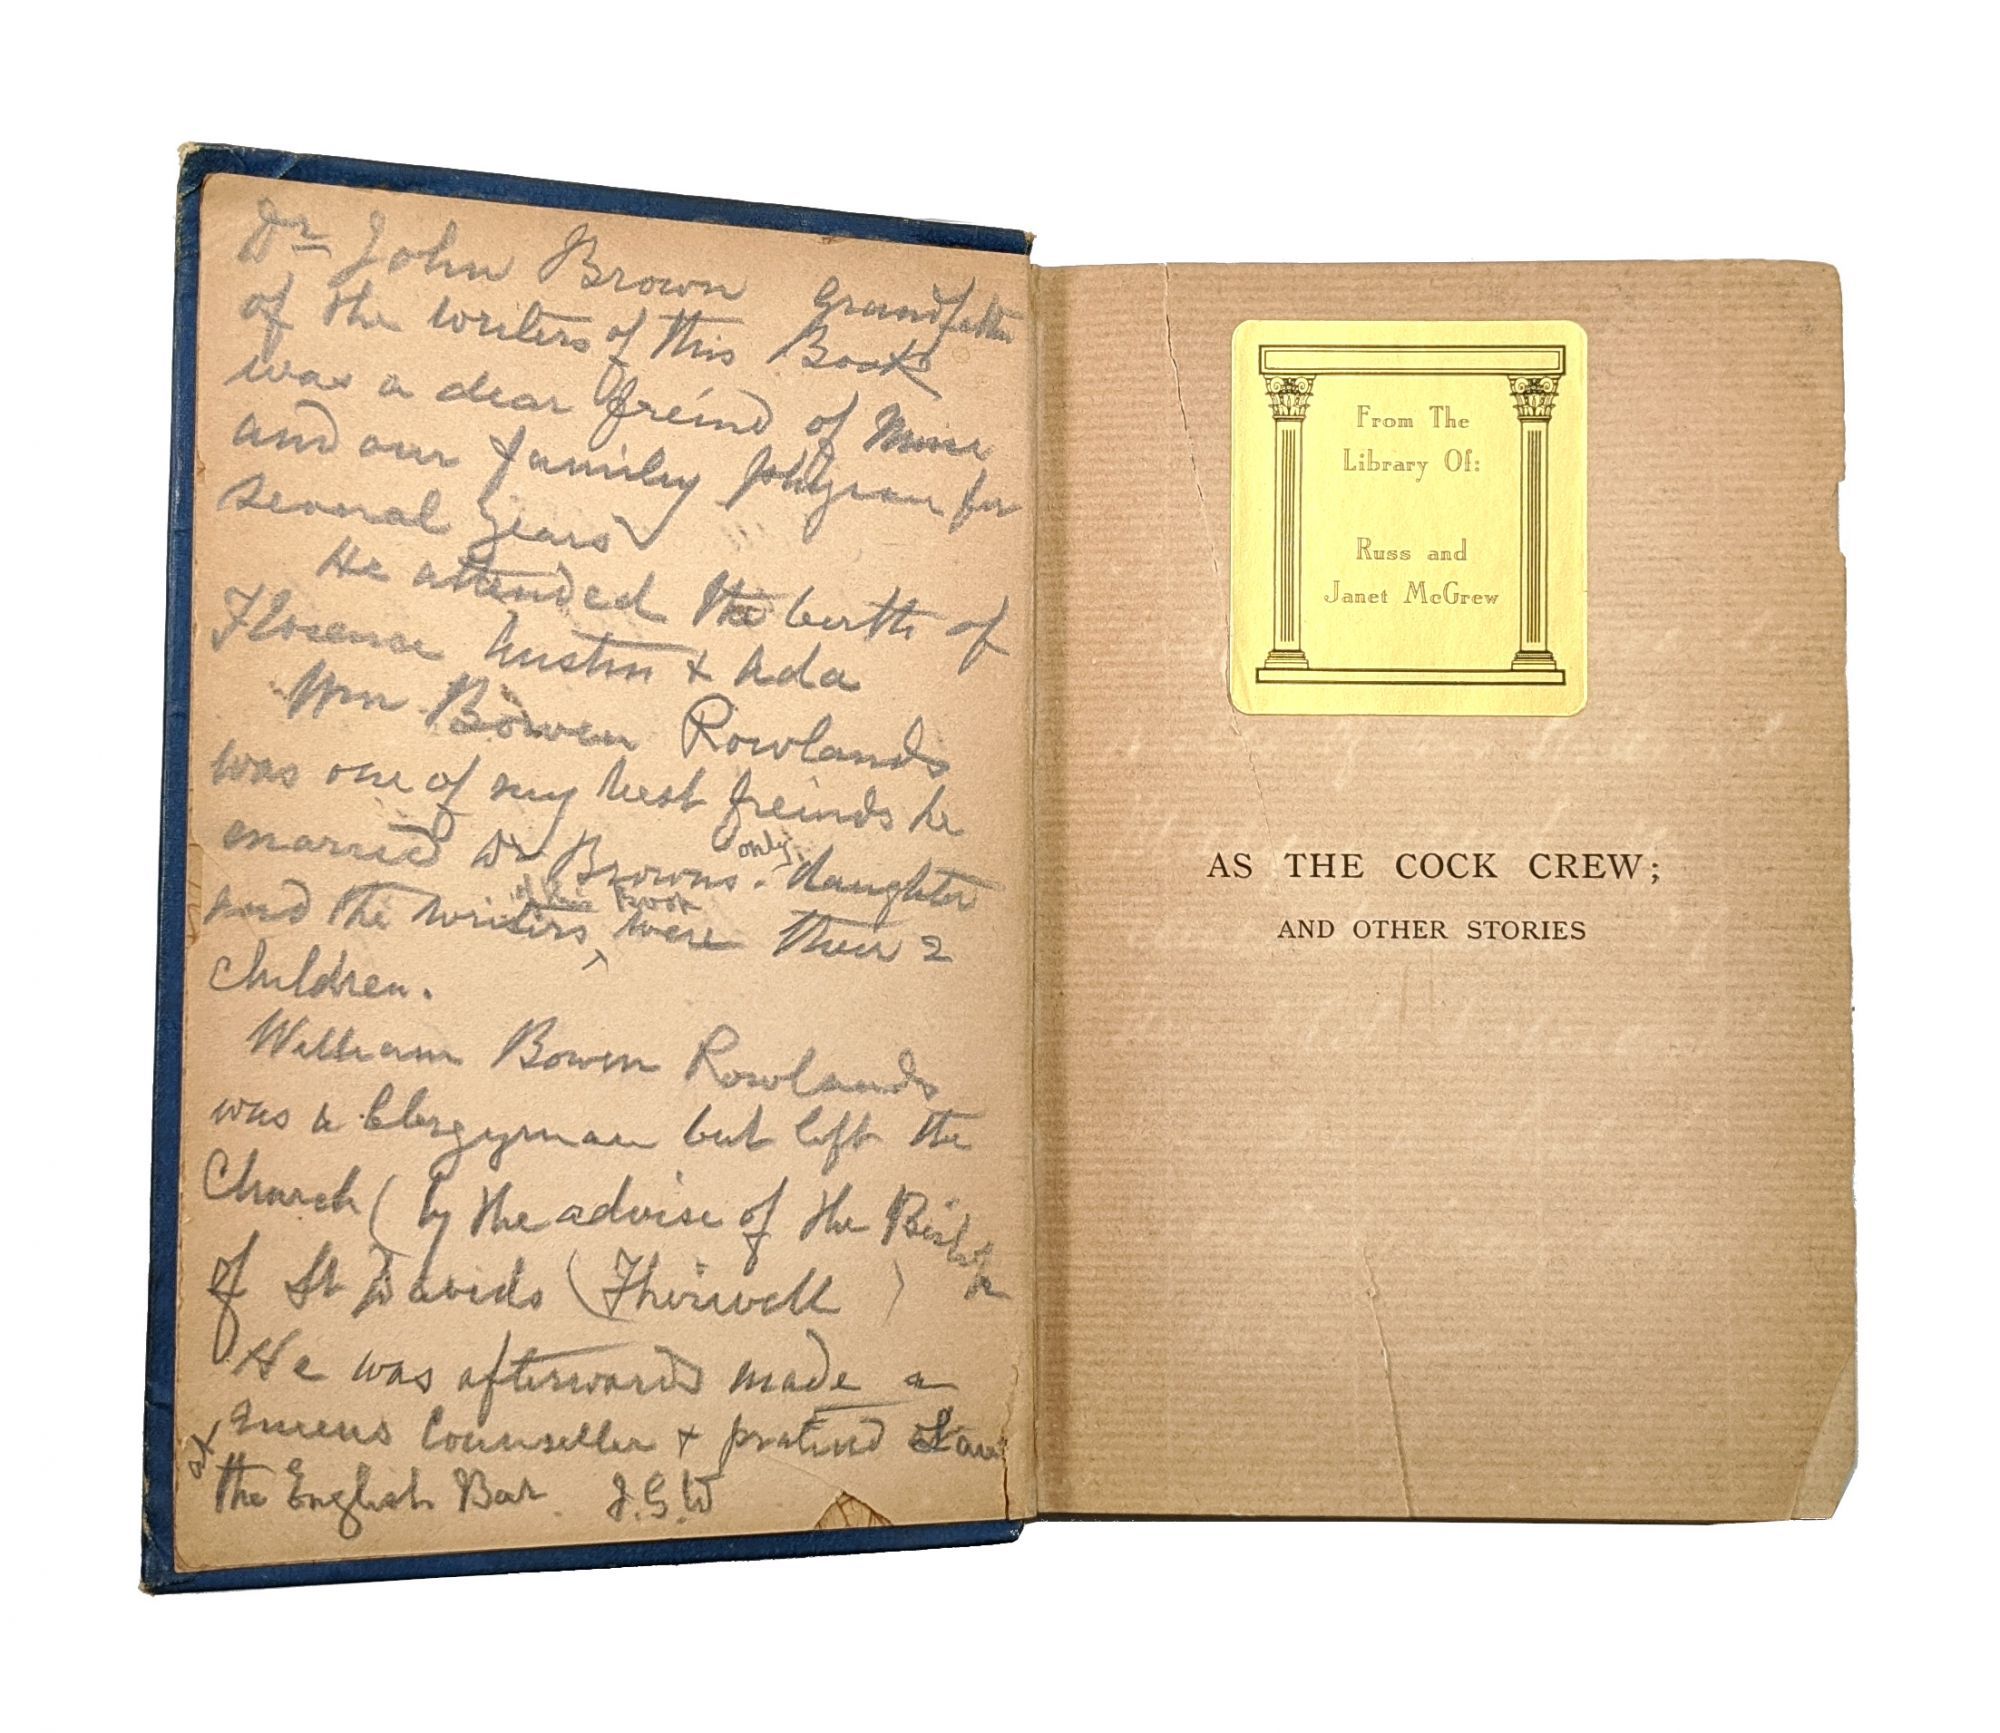 Dr John Brown grandfather
of the writers of this Book
was a dear freind of mine
and our family phhysian for
several years
He attended the birth of
Florence Austin + Ada
Wm Bowen Rowlands
was one of my best freinds he
married Dr Browns only daughter
and the writers of this Book were their 2
children.
William Bowen Rowlands
was a Clergyman but left the
Church (by the advise of the Bishop
of St Davids (Thirwell)
He was afterwards made a
queens Counseller + Law
at the English Bar. J.G.W
From The
Library Of:
Russ and
Janet McGrew
AS THE COCK CREW;
AND OTHER STORIES